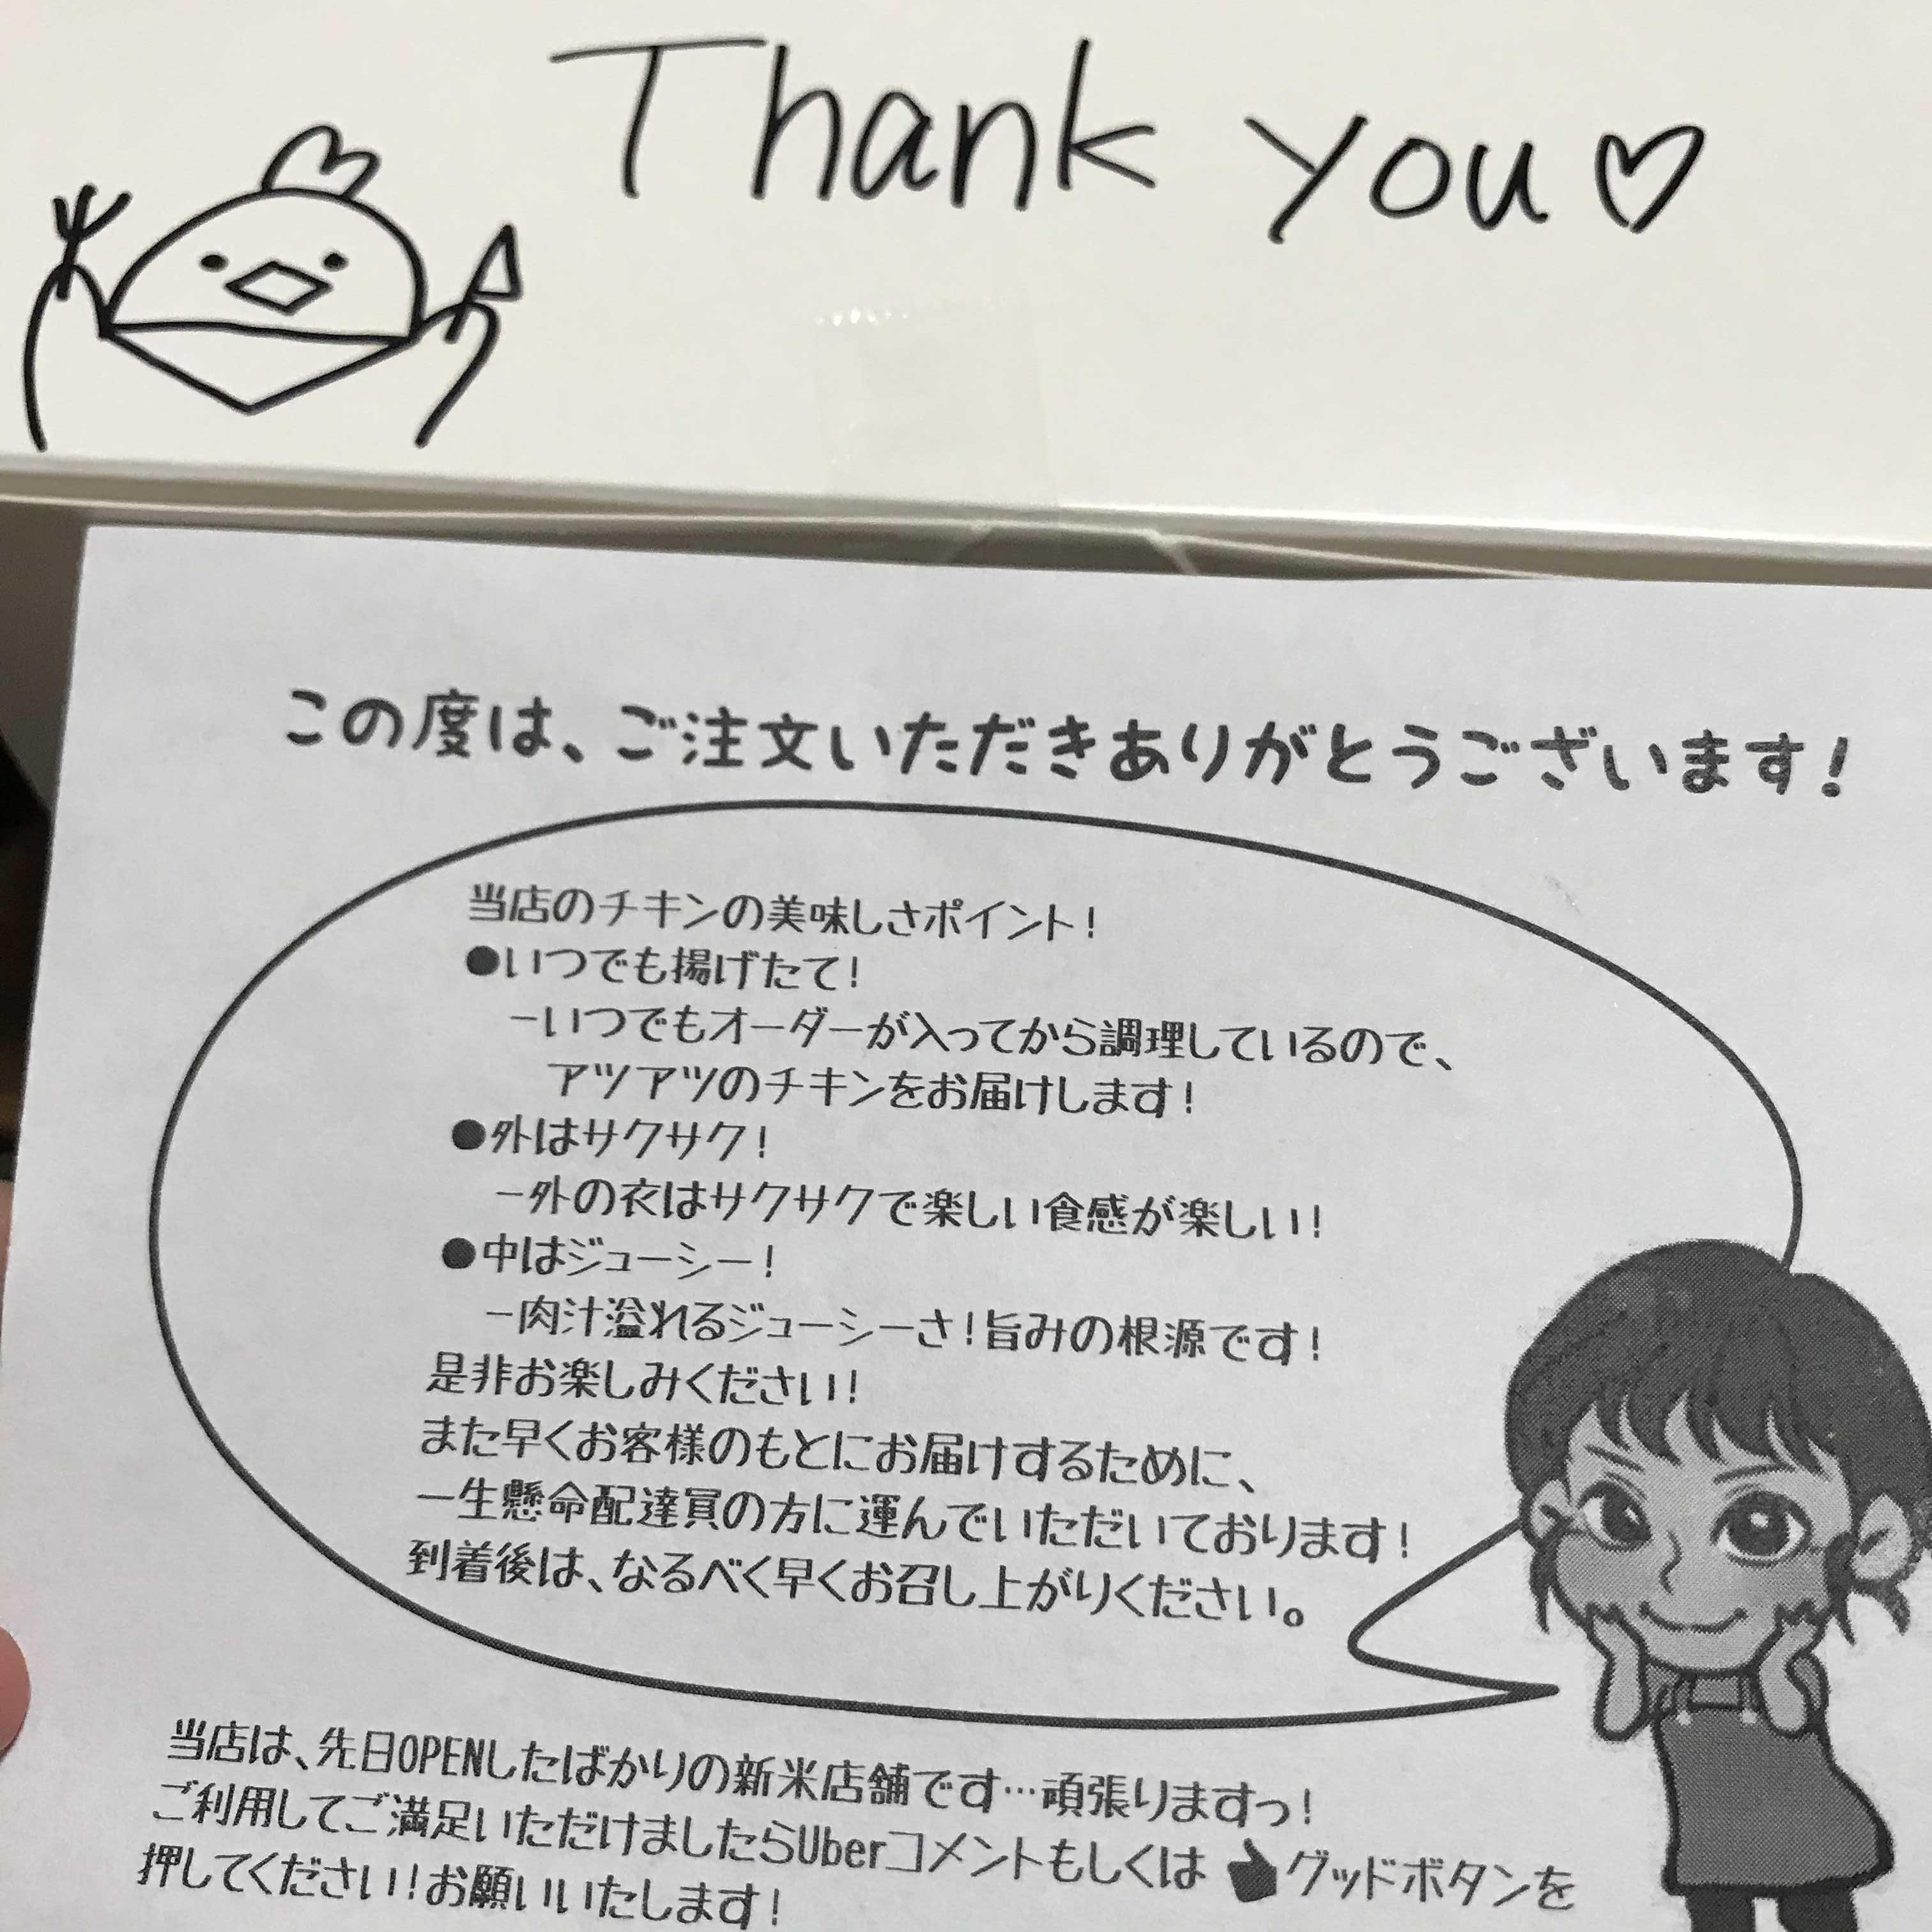 Thank you♡
この度は、ご注文いただきありがとうございます！
当店のチキンの美味しさポイント！
●いつでも揚げたて！
－いつでもオーダーが入ってから調理しているので、
アツアツのチキンをお届けします！
●外はサクサク！
－外の衣はサクサクで楽しい食感が楽しい！
●中はジューシー！
－肉汁溢れるジューシーさ！旨みの根源です！
是非お楽しみください！
また早くお客様のもとにお届けするために、
一生懸命配達員の方に運んでいただいております！
到着後は、なるべく早くお召し上がりください。
当店は、先日OPENしたばかりの新米店舗です…頑張りますっ！
ご利用してご満足いただけましたらUberコメントもしくは👍グッドボタンを
押してください！お願いいたします！